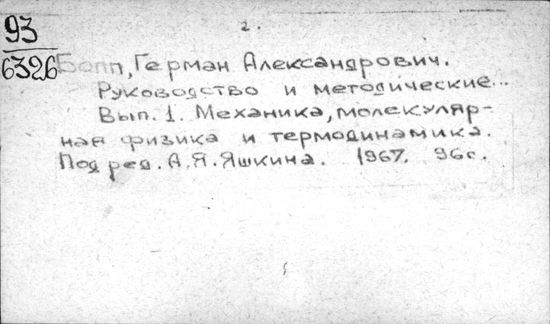 2.
93
6326
Бопп, Герман Александрович.
Руководство и методические...
Вып. 1. Механика, молекуляр-
ная физика и термодинамика.
Под ред. А.Я.Яшкина. 1967. 96с.